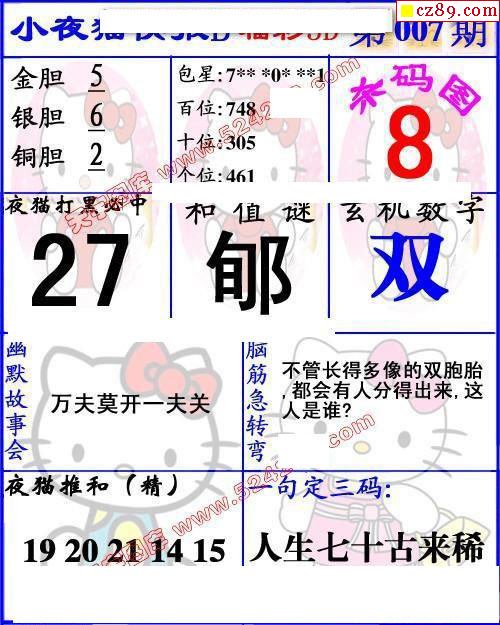 cz89.com
小夜猫快报D 福彩3D 第007期
金胆 5
银胆 6
铜胆 2
包星:7** *0* **1
百位:748
十位:305
个位:461
杀码图
8
夜猫打黑必中
27
和值谜
郇
玄机数字
双
幽默故事会
万夫莫开一夫关
脑筋急转弯
不管长得多像的双胞胎
,都会有人分得出来,这
人是谁?
夜猫推和（精）
19 20 21 14 15
一句定三码:
人生七十古来稀